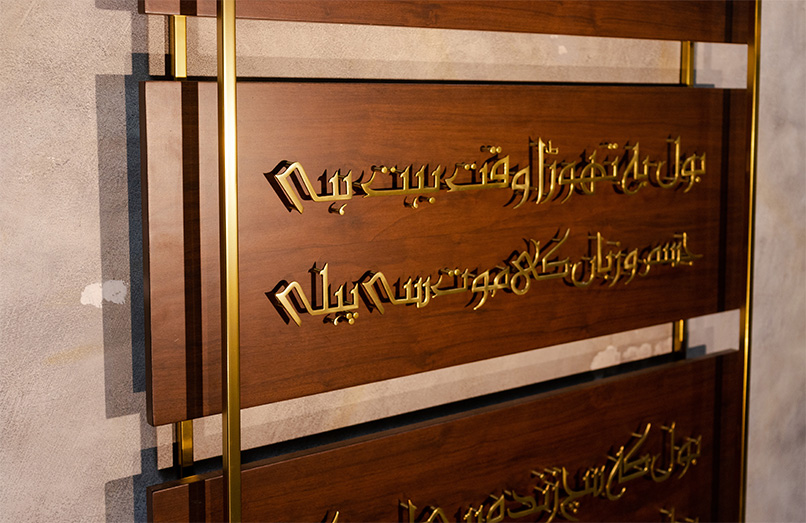 بول یہ تھوڑا وقت بہت ہے
جسم و زبان کی موت سے پہلے
بول کہ سچ زندہ ہے